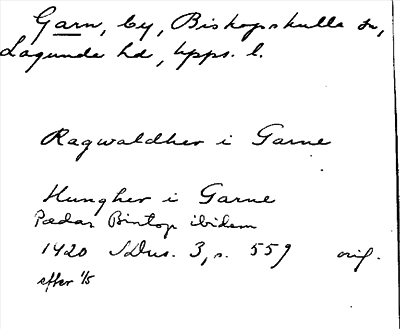 Garn, by, Biskopskulla sn,
Lagunda hd, Upps. l.
Ragwaldher i Garne
Hungher i Garne
Pædar Bintop ibidem
1420 SDns. 3, s. 559 orig.
efter 1/5